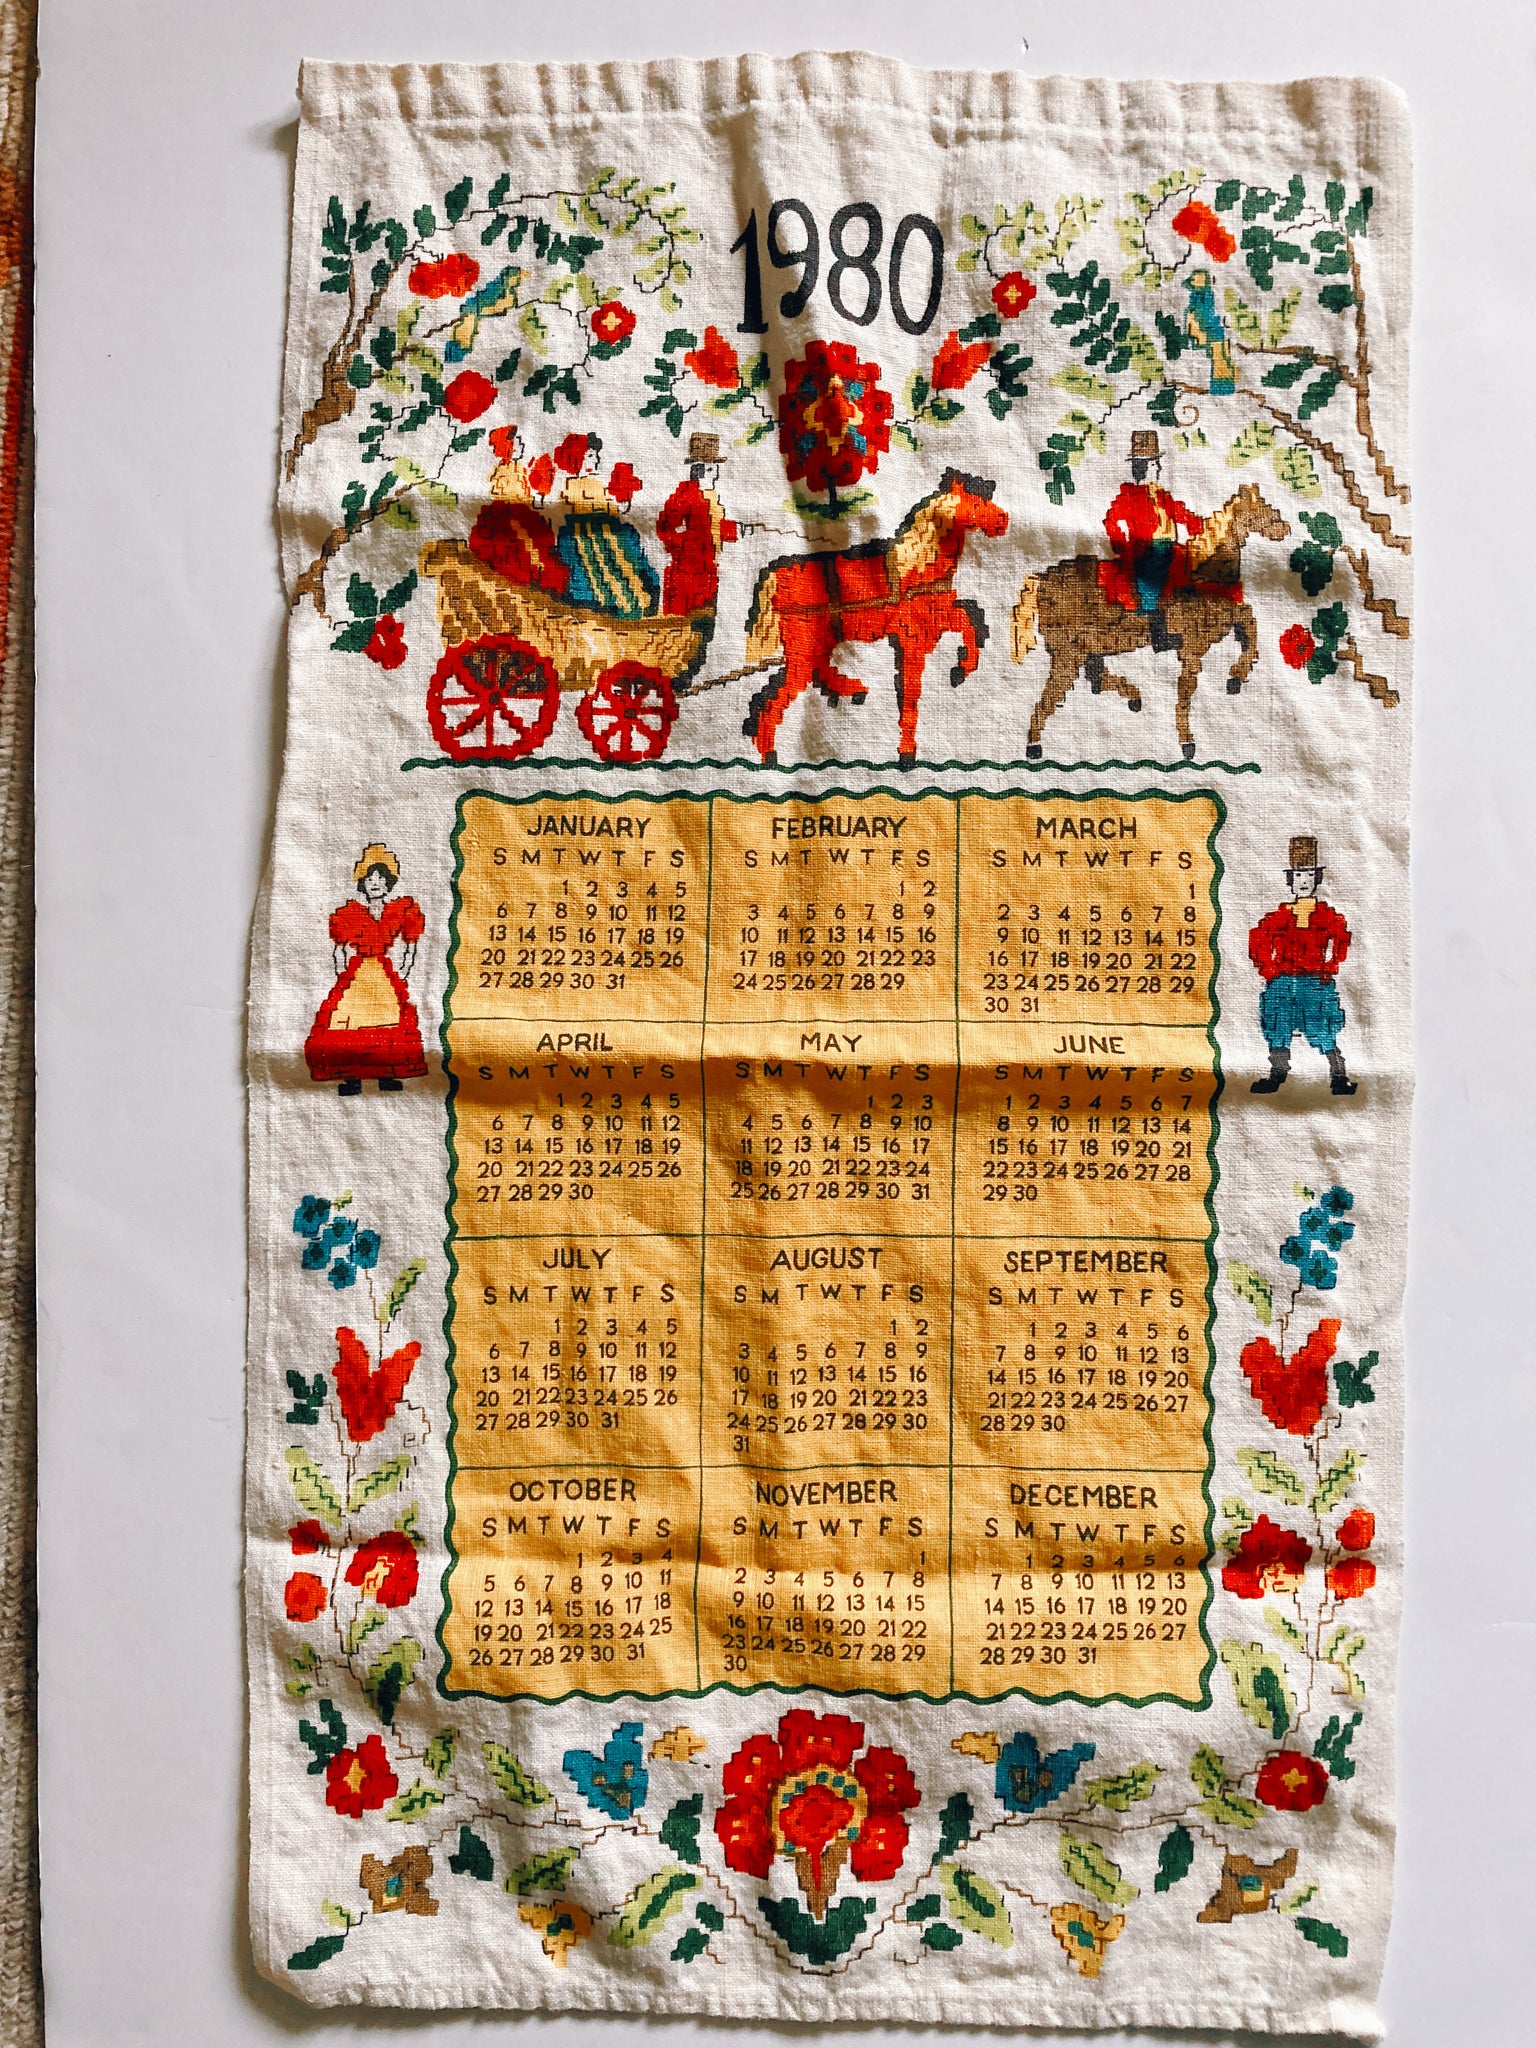 1980
JANUARY
S M T W T F S
1 2 3 4 5
6 7 8 9 10 11 12
13 14 15 16 17 18 19
20 21 22 23 24 25 26
27 28 29 30 31
FEBRUARY
S M T W T F S
1 2
3 4 5 6 7 8 9
10 11 12 13 14 15 16
17 18 19 20 21 22 23
24 25 26 27 28 29
MARCH
S M T W T F S
1
2 3 4 5 6 7 8
9 10 11 12 13 14 15
16 17 18 19 20 21 22
23 24 25 26 27 28 29
30 31
APRIL
S M T W T F S
1 2 3 4 5
6 7 8 9 10 11 12
13 14 15 16 17 18 19
20 21 22 23 24 25 26
27 28 29 30
MAY
S M T W T F S
1 2 3
4 5 6 7 8 9 10
11 12 13 14 15 16 17
18 19 20 21 22 23 24
25 26 27 28 29 30 31
JUNE
S M T W T F S
1 2 3 4 5 6 7
8 9 10 11 12 13 14
15 16 17 18 19 20 21
22 23 24 25 26 27 28
29 30
JULY
S M T W T F S
1 2 3 4 5
6 7 8 9 10 11 12
13 14 15 16 17 18 19
20 21 22 23 24 25 26
27 28 29 30 31
AUGUST
S M T W T F S
1 2
3 4 5 6 7 8 9
10 11 12 13 14 15 16
17 18 19 20 21 22 23
24 25 26 27 28 29 30
31
SEPTEMBER
S M T W T F S
1 2 3 4 5 6
7 8 9 10 11 12 13
14 15 16 17 18 19 20
21 22 23 24 25 26 27
28 29 30
OCTOBER
S M T W T F S
1 2 3 4
5 6 7 8 9 10 11
12 13 14 15 16 17 18
19 20 21 22 23 24 25
26 27 28 29 30 31
NOVEMBER
S M T W T F S
1
2 3 4 5 6 7 8
9 10 11 12 13 14 15
16 17 18 19 20 21 22
23 24 25 26 27 28 29
30
DECEMBER
S M T W T F S
1 2 3 4 5 6
7 8 9 10 11 12 13
14 15 16 17 18 19 20
21 22 23 24 25 26 27
28 29 30 31